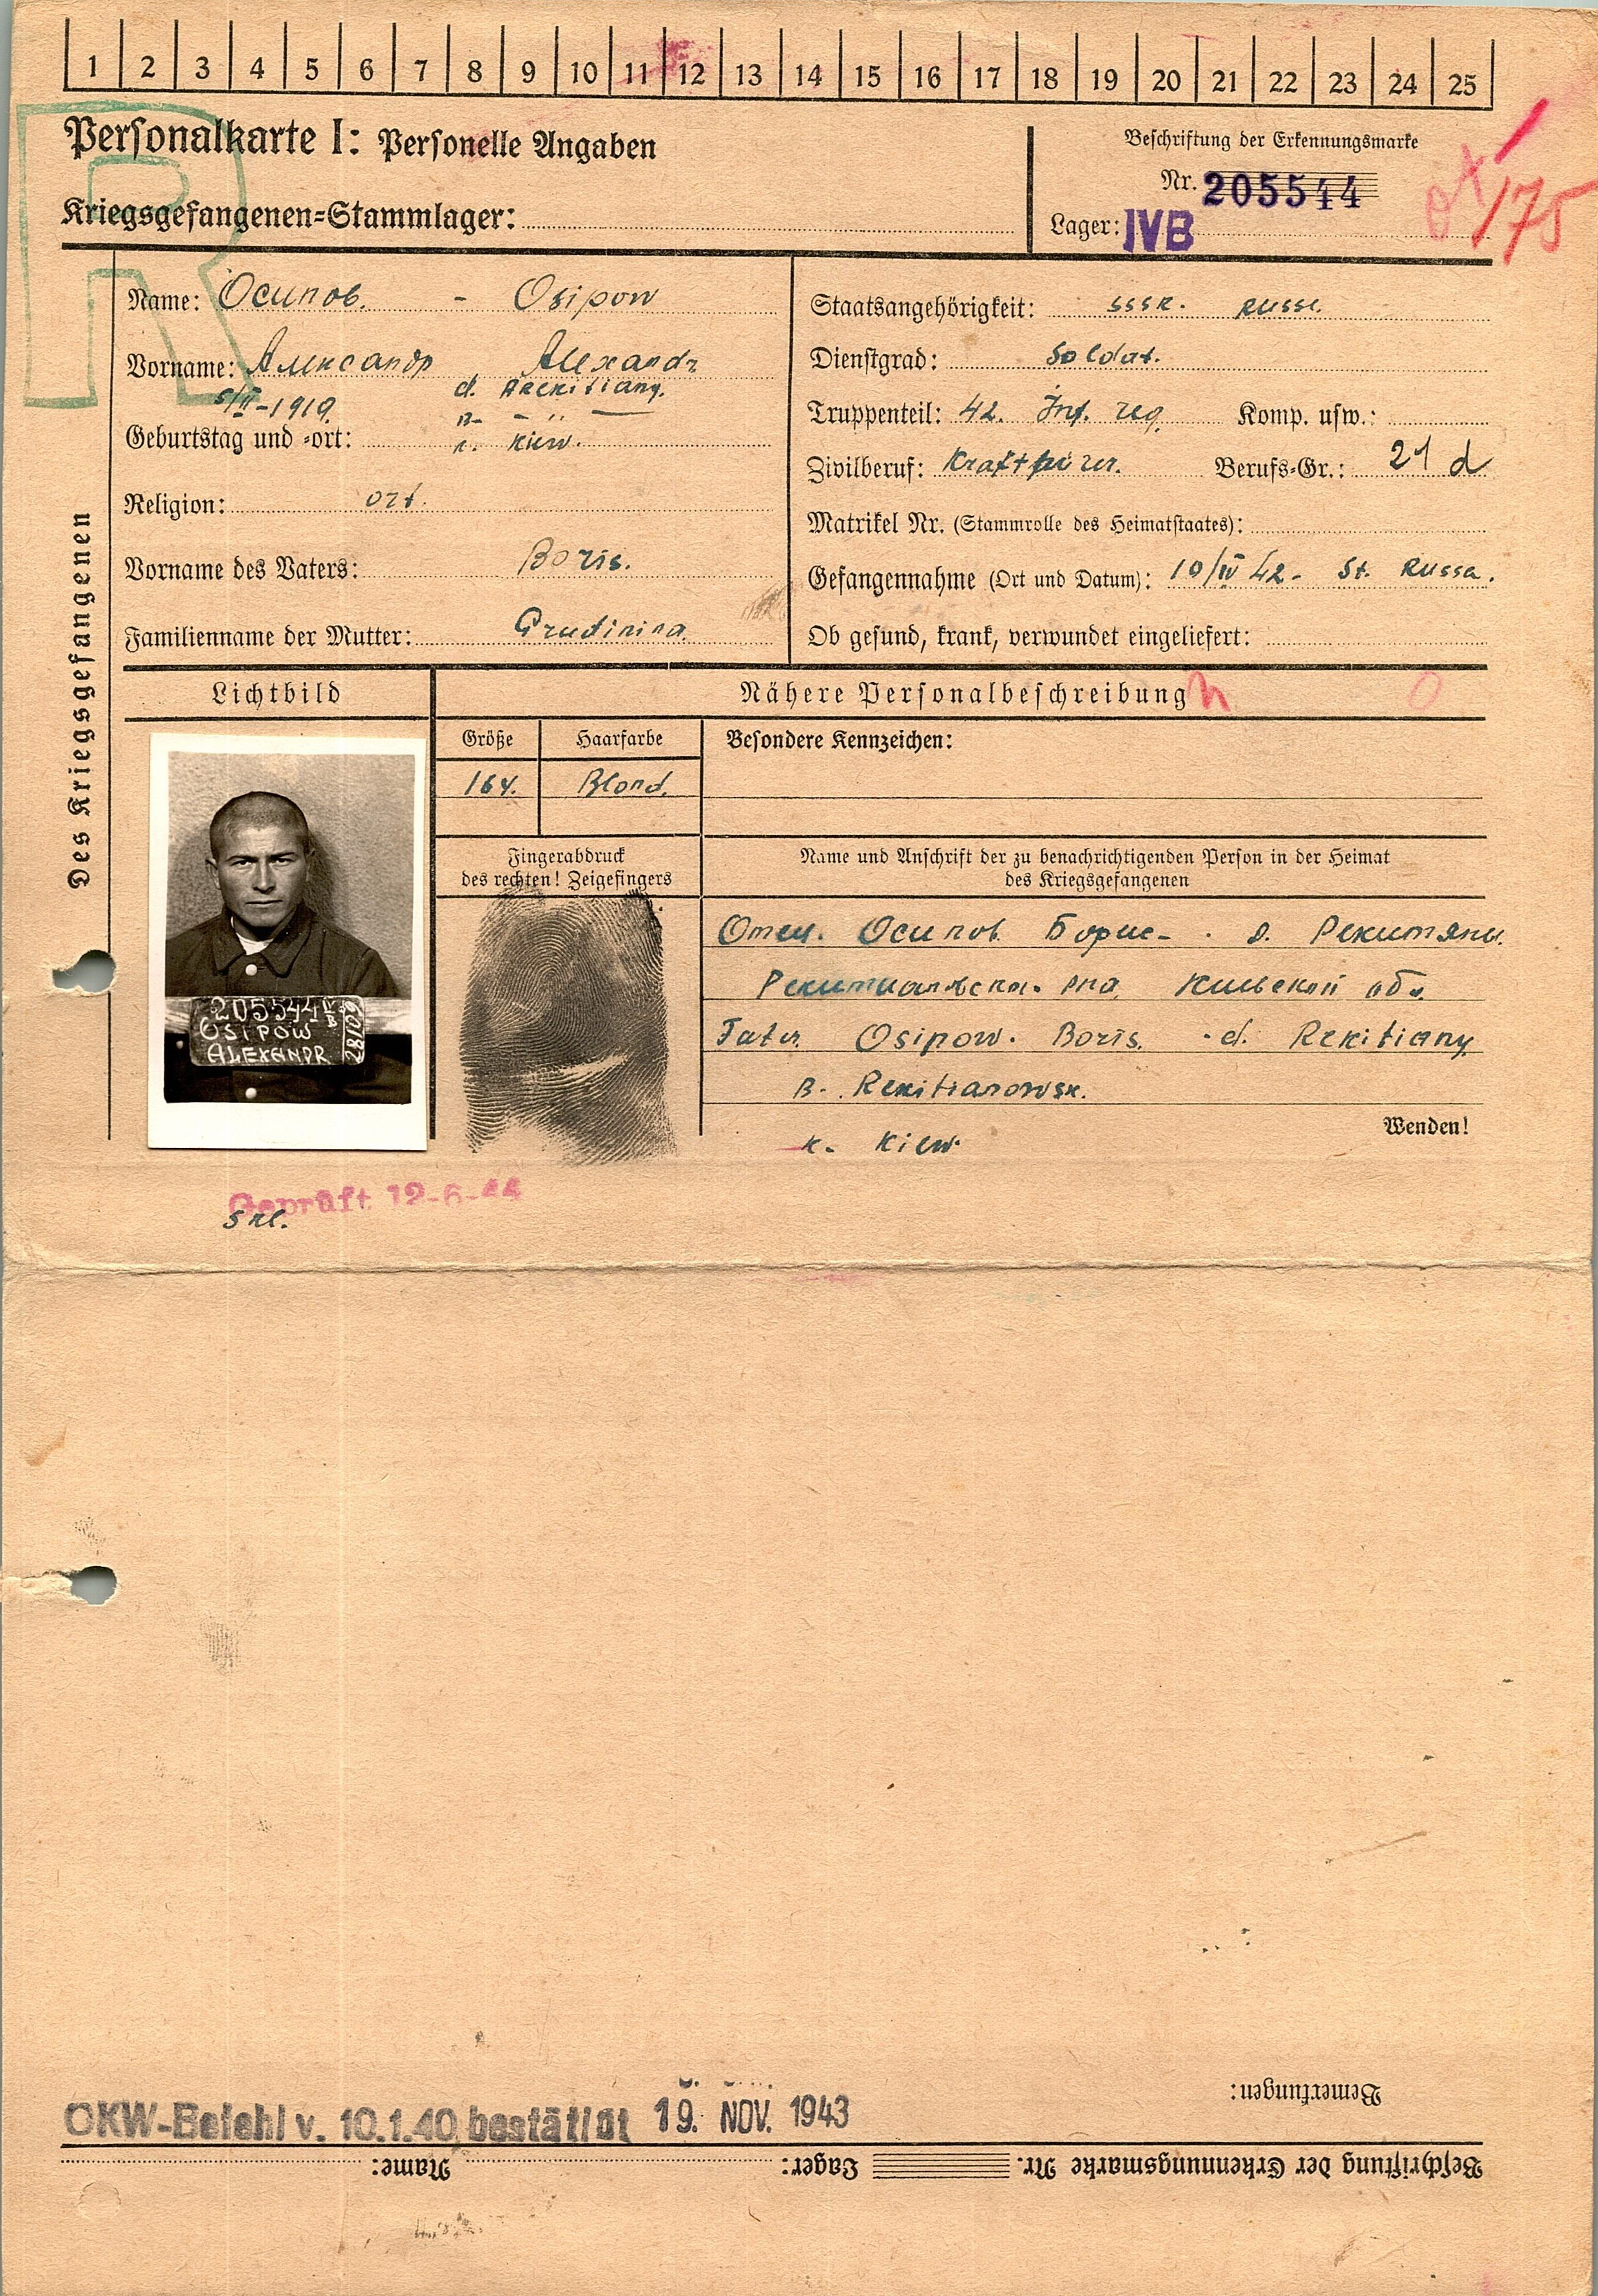 1 2 3 4 5 6 7 8 9 10 11 12 13 14 15 16 17 18 19 20 21 22 23 24 25
R
Personalkarte I: Personelle Angaben
Kriegsgefangenen=Stammlager:
Beschriftung der Erkennungsmarke
Nr. 205544
Lager: IVB
175
Des Kriegsgefangenen
Name: Осипов. - Osipow
Vorname: Александр Alexandr
5/II-1919 d.
Geburtstag und =ort: k. Kiew.
Religion: ort.
Vorname des Vaters: Boris.
Familienname der Mutter: Grudinina
Staatsangehörigkeit: SSSR. Russe.
Dienstgrad: Soldat.
Truppenteil: 42. Inf. reg. Komp. usw.:
Zivilberuf: Kraftfürer. Berufs=Gr.: 21 d
Matrikel Nr. (Stammrolle des Heimatstaates):
Gefangennahme (Ort und Datum): 10/IV 42 - St. Russa.
Ob gesund, krank, verwundet eingeliefert:
Lichtbild
Nähere Personalbeschreibung
Größe Haarfarbe Besondere Kennzeichen:
164. Blond.
205544 IVB
OSIPOW
ALEXANDR
28/109
Fingerabdruck
des rechten! Zeigefingers
Name und Anschrift der zu benachrichtigenden Person in der Heimat
des Kriegsgefangenen
Отец. Осипов Борис - д. Рекитяны.
рна Киевской обл.
Fater Osipow. Boris. - d. Rekitiany
R. Rekitianowsk.
k. Kiew.
Wenden!
Geprüft 12-6-44
OKW-Befehl v. 10.1.40 bestätigt 19. NOV. 1943
Bemerkungen:
Beschriftung der Erkennungsmarke Nr. Lager: Name: